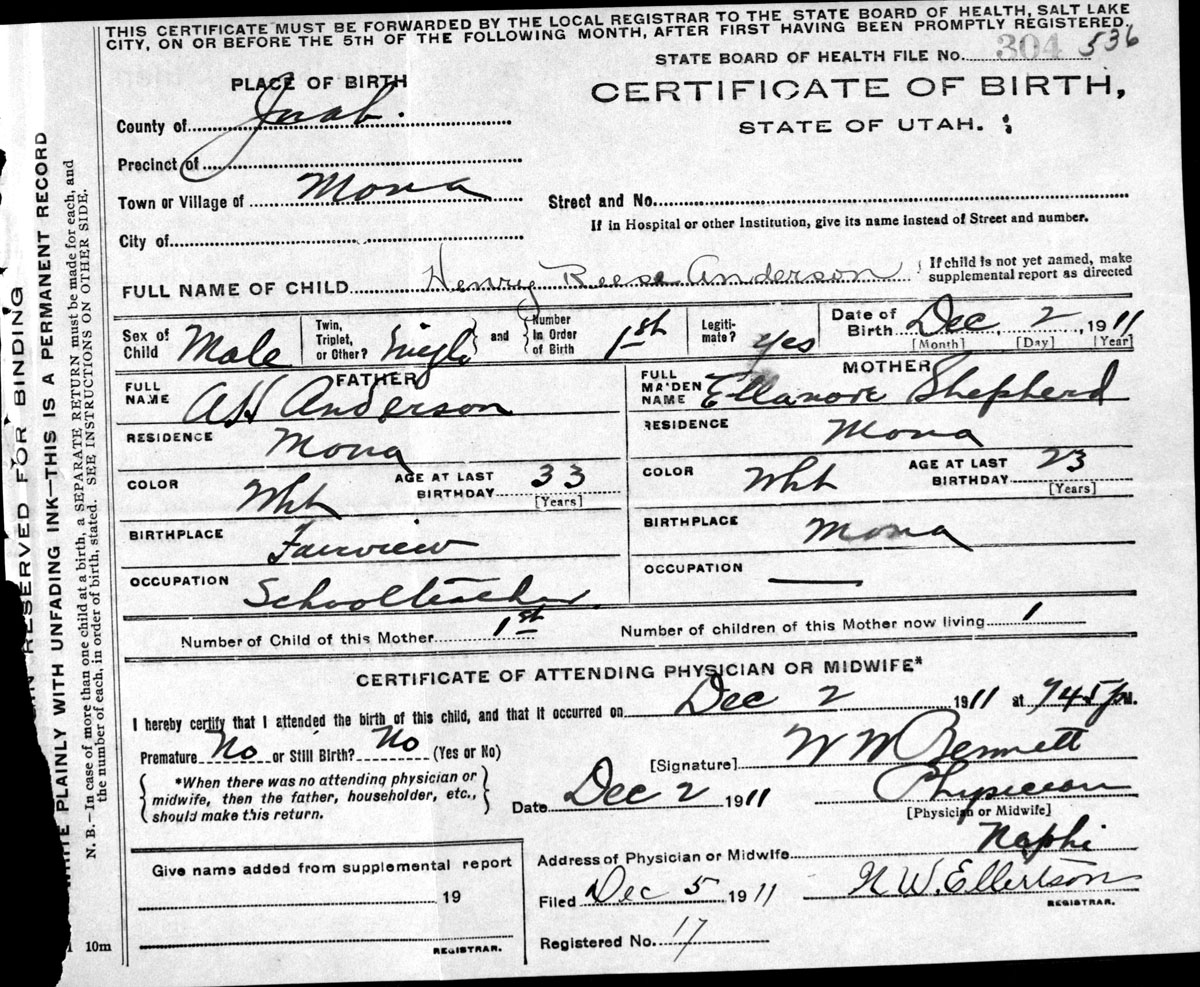 THIS CERTIFICATE MUST BE FORWARDED BY THE LOCAL REGISTRAR TO THE STATE BOARD OF HEALTH, SALT LAKE
CITY, ON OR BEFORE THE 5TH OF THE FOLLOWING MONTH, AFTER FIRST HAVING BEEN PROMPTLY REGISTERED.
STATE BOARD OF HEALTH FILE No. 304 536
PLACE OF BIRTH
CERTIFICATE OF BIRTH,
STATE OF UTAH.
County of Juab.
Precinct of
Town or Village of Mona
Street and No.
If in Hospital or other Institution, give its name instead of Street and number.
City of
FULL NAME OF CHILD Henry Reese Anderson
If child is not yet named, make
supplemental report as directed
Sex of Child Male
Twin, Triplet, or Other? Single and Number In Order of Birth 1st
Legitimate? Yes
Date of Birth Dec. 2, 1911
[Month] [Day] [Year]
FATHER
MOTHER
FULL NAME AH Anderson
FULL MAIDEN NAME Ellanore Shepherd
RESIDENCE Mona
RESIDENCE Mona
COLOR Wht AGE AT LAST BIRTHDAY 33 [Years]
COLOR Wht AGE AT LAST BIRTHDAY 23 [Years]
BIRTHPLACE Fairview
BIRTHPLACE Mona
OCCUPATION Schoolteacher
OCCUPATION —
Number of Child of this Mother 1st
Number of children of this Mother now living 1
CERTIFICATE OF ATTENDING PHYSICIAN OR MIDWIFE*
I hereby certify that I attended the birth of this child, and that it occurred on Dec 2 1911 at 745 P M.
Premature No or Still Birth? No (Yes or No)
[Signature] W W Bennett
*When there was no attending physician or
midwife, then the father, householder, etc.,
should make this return.
Date Dec 2 1911 Physician
[Physician or Midwife]
Give name added from supplemental report
19
REGISTRAR.
Address of Physician or Midwife Nephi
Filed Dec 5 1911 N W. Ellertson
REGISTRAR.
Registered No. 17
10m
RESERVED FOR BINDING
WRITE PLAINLY WITH UNFADING INK—THIS IS A PERMANENT RECORD
N. B.—In case of more than one child at a birth, a SEPARATE RETURN must be made for each, and
the number of each, in order of birth, stated. SEE INSTRUCTIONS ON OTHER SIDE.